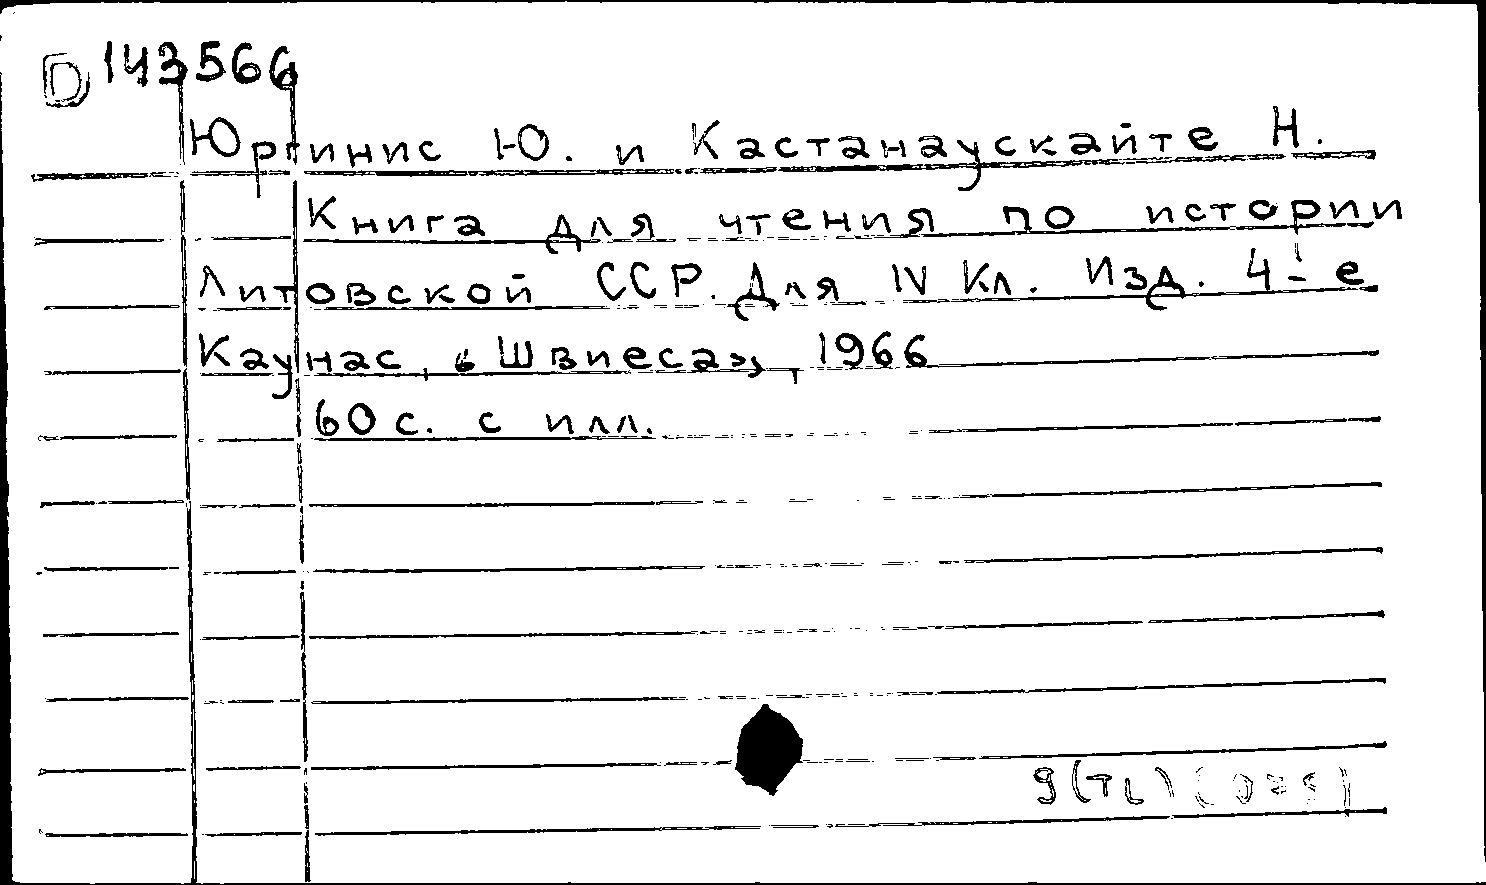 D 143566
Юргинис Ю. и Кастанаускайте Н.
Книга для чтения по истории
Литовской ССР. Для IV Кл. Изд. 4-е
Каунас, «Швиеса», 1966
60 с. с илл.
9(TL)